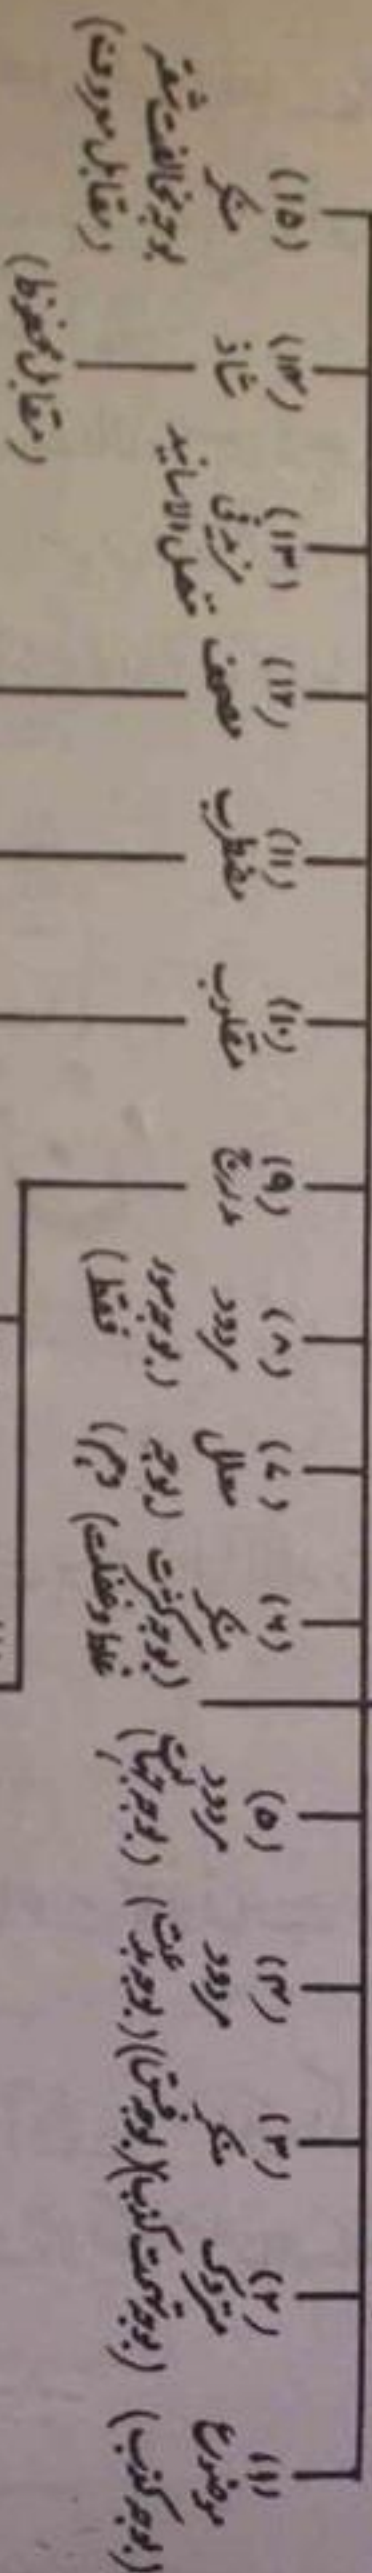 (۱)
موضوع
(بوجہ کذب)
(۲)
متروک
(بوجہ تہمت کذب)
(۳)
منکر
(بوجہ فسق)
(۴)
مردود
(بوجہ بد
عت)
(۵)
مردود
(بوجہ جہا
لت)
(۶)
منکر
(بوجہ کثرت
غلط و غفلت)
(۷)
معلل
(بوجہ
وہم)
(۸)
مردود
(بوجہ سوء
حفظ)
(۹)
مدرج
(۱۰)
مقلوب
(۱۱)
مضطرب
(۱۲)
مصحف
(۱۳)
مزید فی
متصل الاسانید
(۱۴)
شاذ
(مقابل محفوظ)
(۱۵)
منکر
بوجہ مخالفت ثقہ
(مقابل معروف)